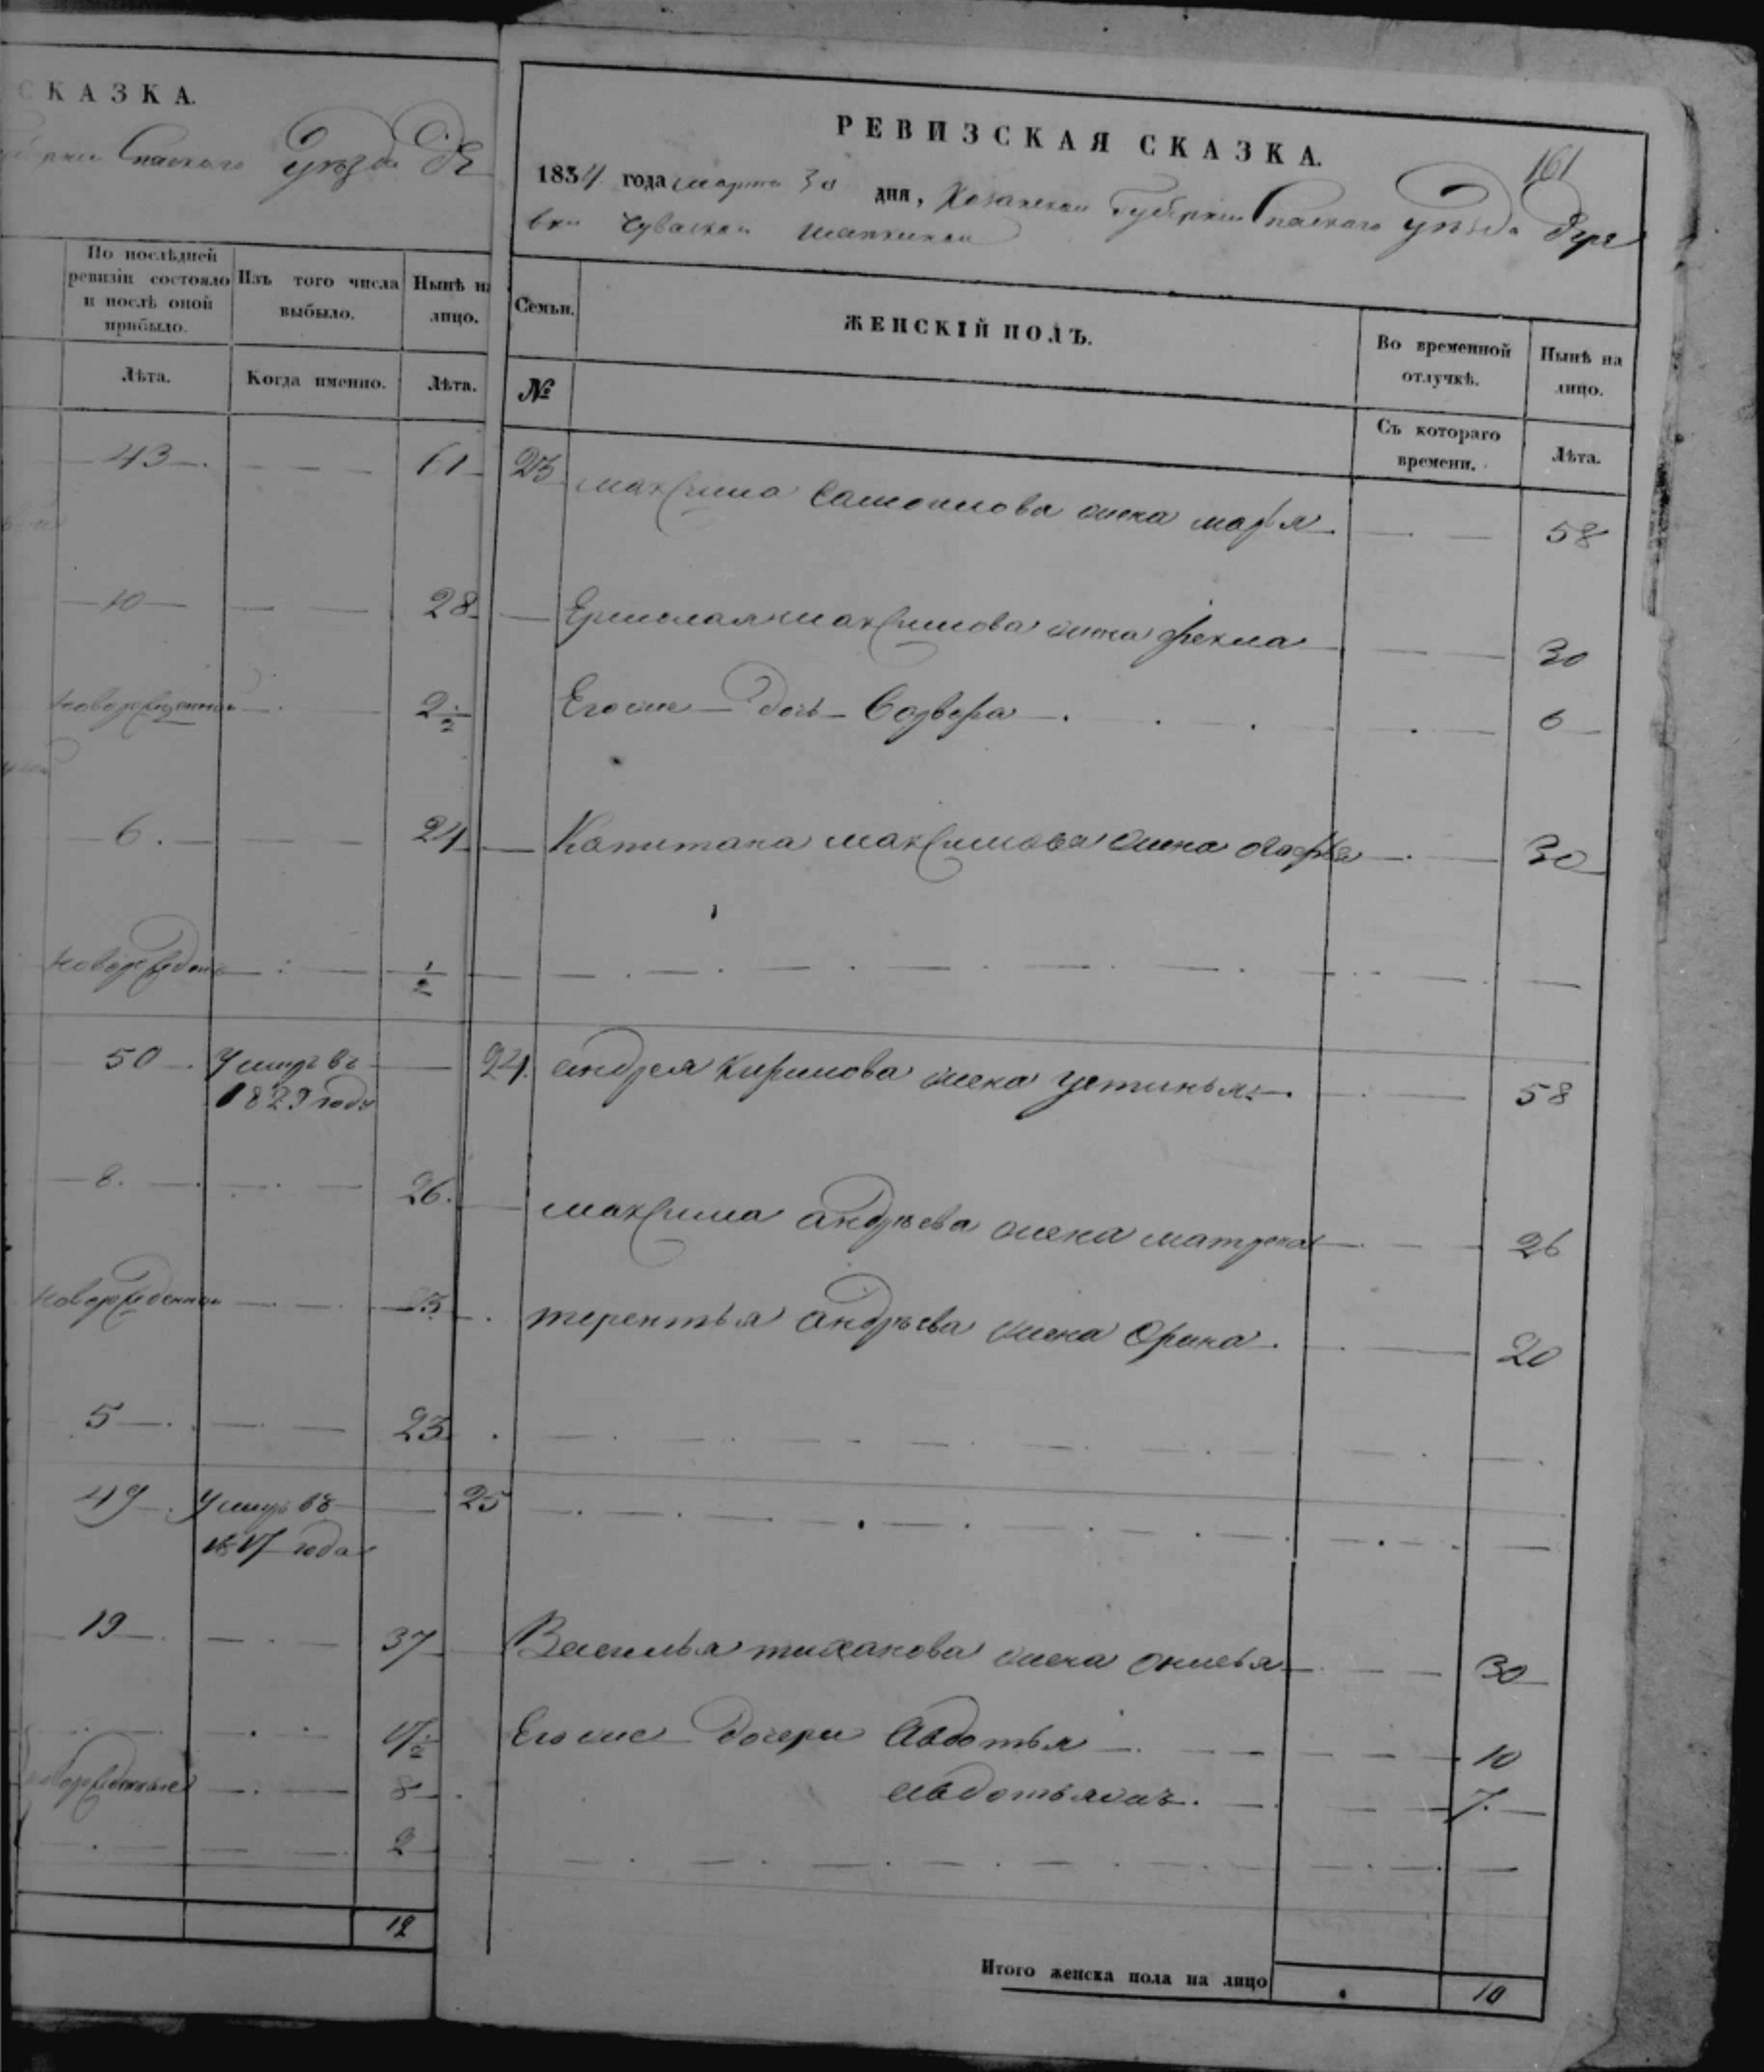 СКАЗКА.
Спаскаго Уѣзда Де
По послѣдней ревизіи состояло и послѣ оной прибыло.
Изъ того числа выбыло.
Нынѣ на лицо.
Лѣта.
Когда именно.
Лѣта.
43 61
10 28
новорожденной 2 1/2
6. 24
новорожден 1/2
50 Умеръ въ
1829 году
8. 26.
новорожденной
5 23
49 Умеръ въ
года
19 37
новорожденные 8
2
12
161
РЕВИЗСКАЯ СКАЗКА.
1834 года марта 30 дня, Казанской Губернии Спаскаго Уѣзда Дере
вни Чуваской
Семьи. ЖЕНСКІЙ ПОЛЪ. Во временной отлучкѣ. Нынѣ на лицо.
№ Съ котораго времени. Лѣта.
23 максима Самоилова жена марья 58
Ермолая максимова жена фекла 30
Егоже дочь 6
Капитана максимова жена 30
24. андрея Кирилова жена устинья 58
максима андрѣева жена матрена 26
терентья андрѣева жена Орина 20
25
Василья тиханова жена 30
Егоже дочери Авдотья 10
7.
Итого женска пола на лицо 10